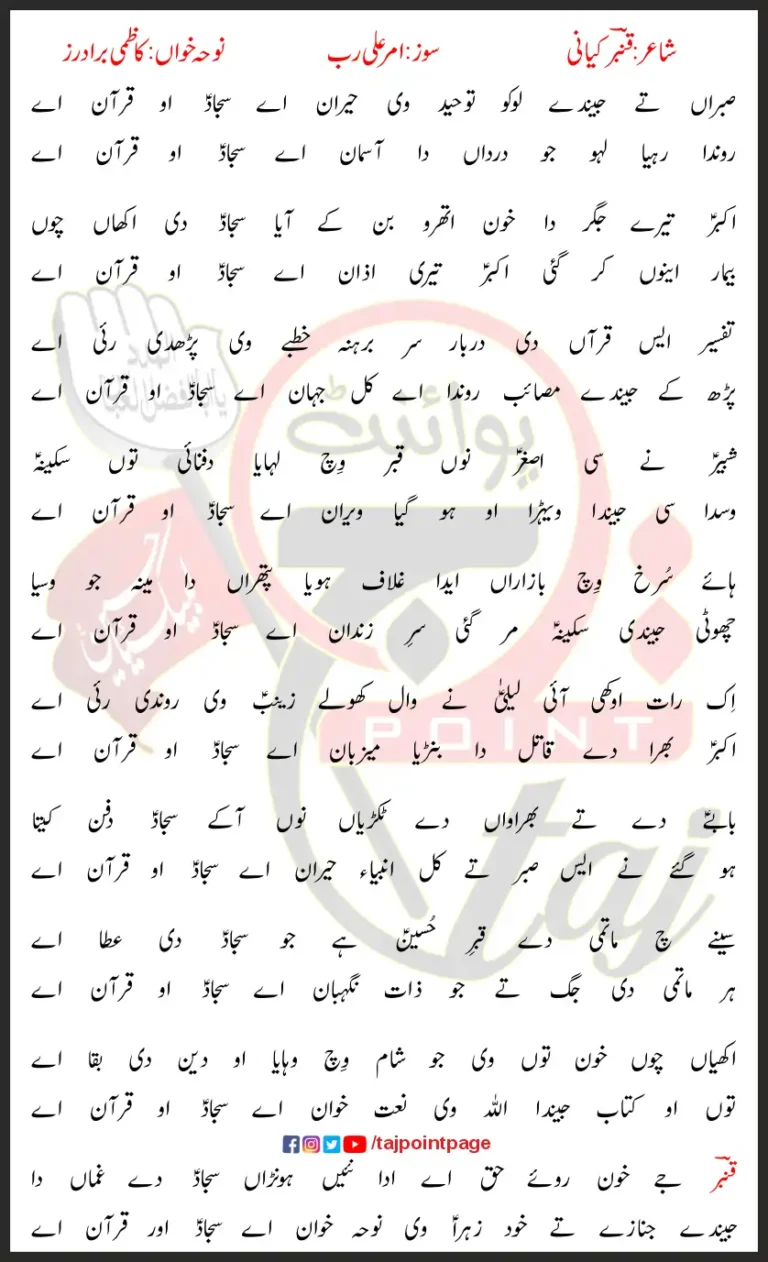 شاعر: قنبر کیانی سوز: امر علی رب نوحہ خواں: کاظمی برادرز
صبراں تے جیندے لوکو توحید وی حیران اے سجادؑ او قرآن اے
روندا رہیا لہو جو درداں دا آسمان اے سجادؑ او قرآن اے
اکبرؑ تیرے جگر دا خون اتھرو بن کے آیا سجادؑ دی اکھاں چوں
بیمار اینوں کر گئی اکبرؑ تیری اذان اے سجادؑ او قرآن اے
تفسیر ایس قرآں دی دربار سر برہنہ خطبے وی پڑھدی رئی اے
پڑھ کے جیندے مصائب روندا اے کل جہان اے سجادؑ او قرآن اے
شبیرؑ نے سی اصغرؑ نوں قبر وِچ لہایا دفنائی توں سکینہؑ
وسدا سی جیندا ویہڑا او ہو گیا ویران اے سجادؑ او قرآن اے
ہائے سُرخ وِچ بازاراں ایدا غلاف ہویا پتھراں دا مینہ جو وسیا
چھوٹی جیندی سکینہؑ مر گئی سرِ زندان اے سجادؑ او قرآن اے
اِک رات اوکھی آئی لیلیٰؑ نے وال کھولے زینبؑ وی روندی رئی اے
اکبرؑ بھرا دے قاتل دا بنڑیا میزبان اے سجادؑ او قرآن اے
بابےؑ دے تے بھراواں دے ٹکڑیاں نوں آکے سجادؑ دفن کیتا
ہو گئے نے ایس صبر تے کل انبیاء حیران اے سجادؑ او قرآن اے
سینے چ ماتمی دے قبرِ حُسینؑ ہے جو سجادؑ دی عطا اے
ہر ماتمی دی جگ تے جو ذات نگہبان اے سجادؑ او قرآن اے
اکھیاں چوں خون توں وی جو شام وِچ وہایا او دین دی بقا اے
توں او کتاب جیندا اللہ وی نعت خوان اے سجادؑ او قرآن اے
/tajpointpage
قنبر جے خون روئے حق اے ادا نئیں ہونڑاں سجادؑ دے غماں دا
جیندے جنازے تے خود زہراؑ وی نوحہ خوان اے سجادؑ اور قرآن اے
پوائنٹ
POINT
taj